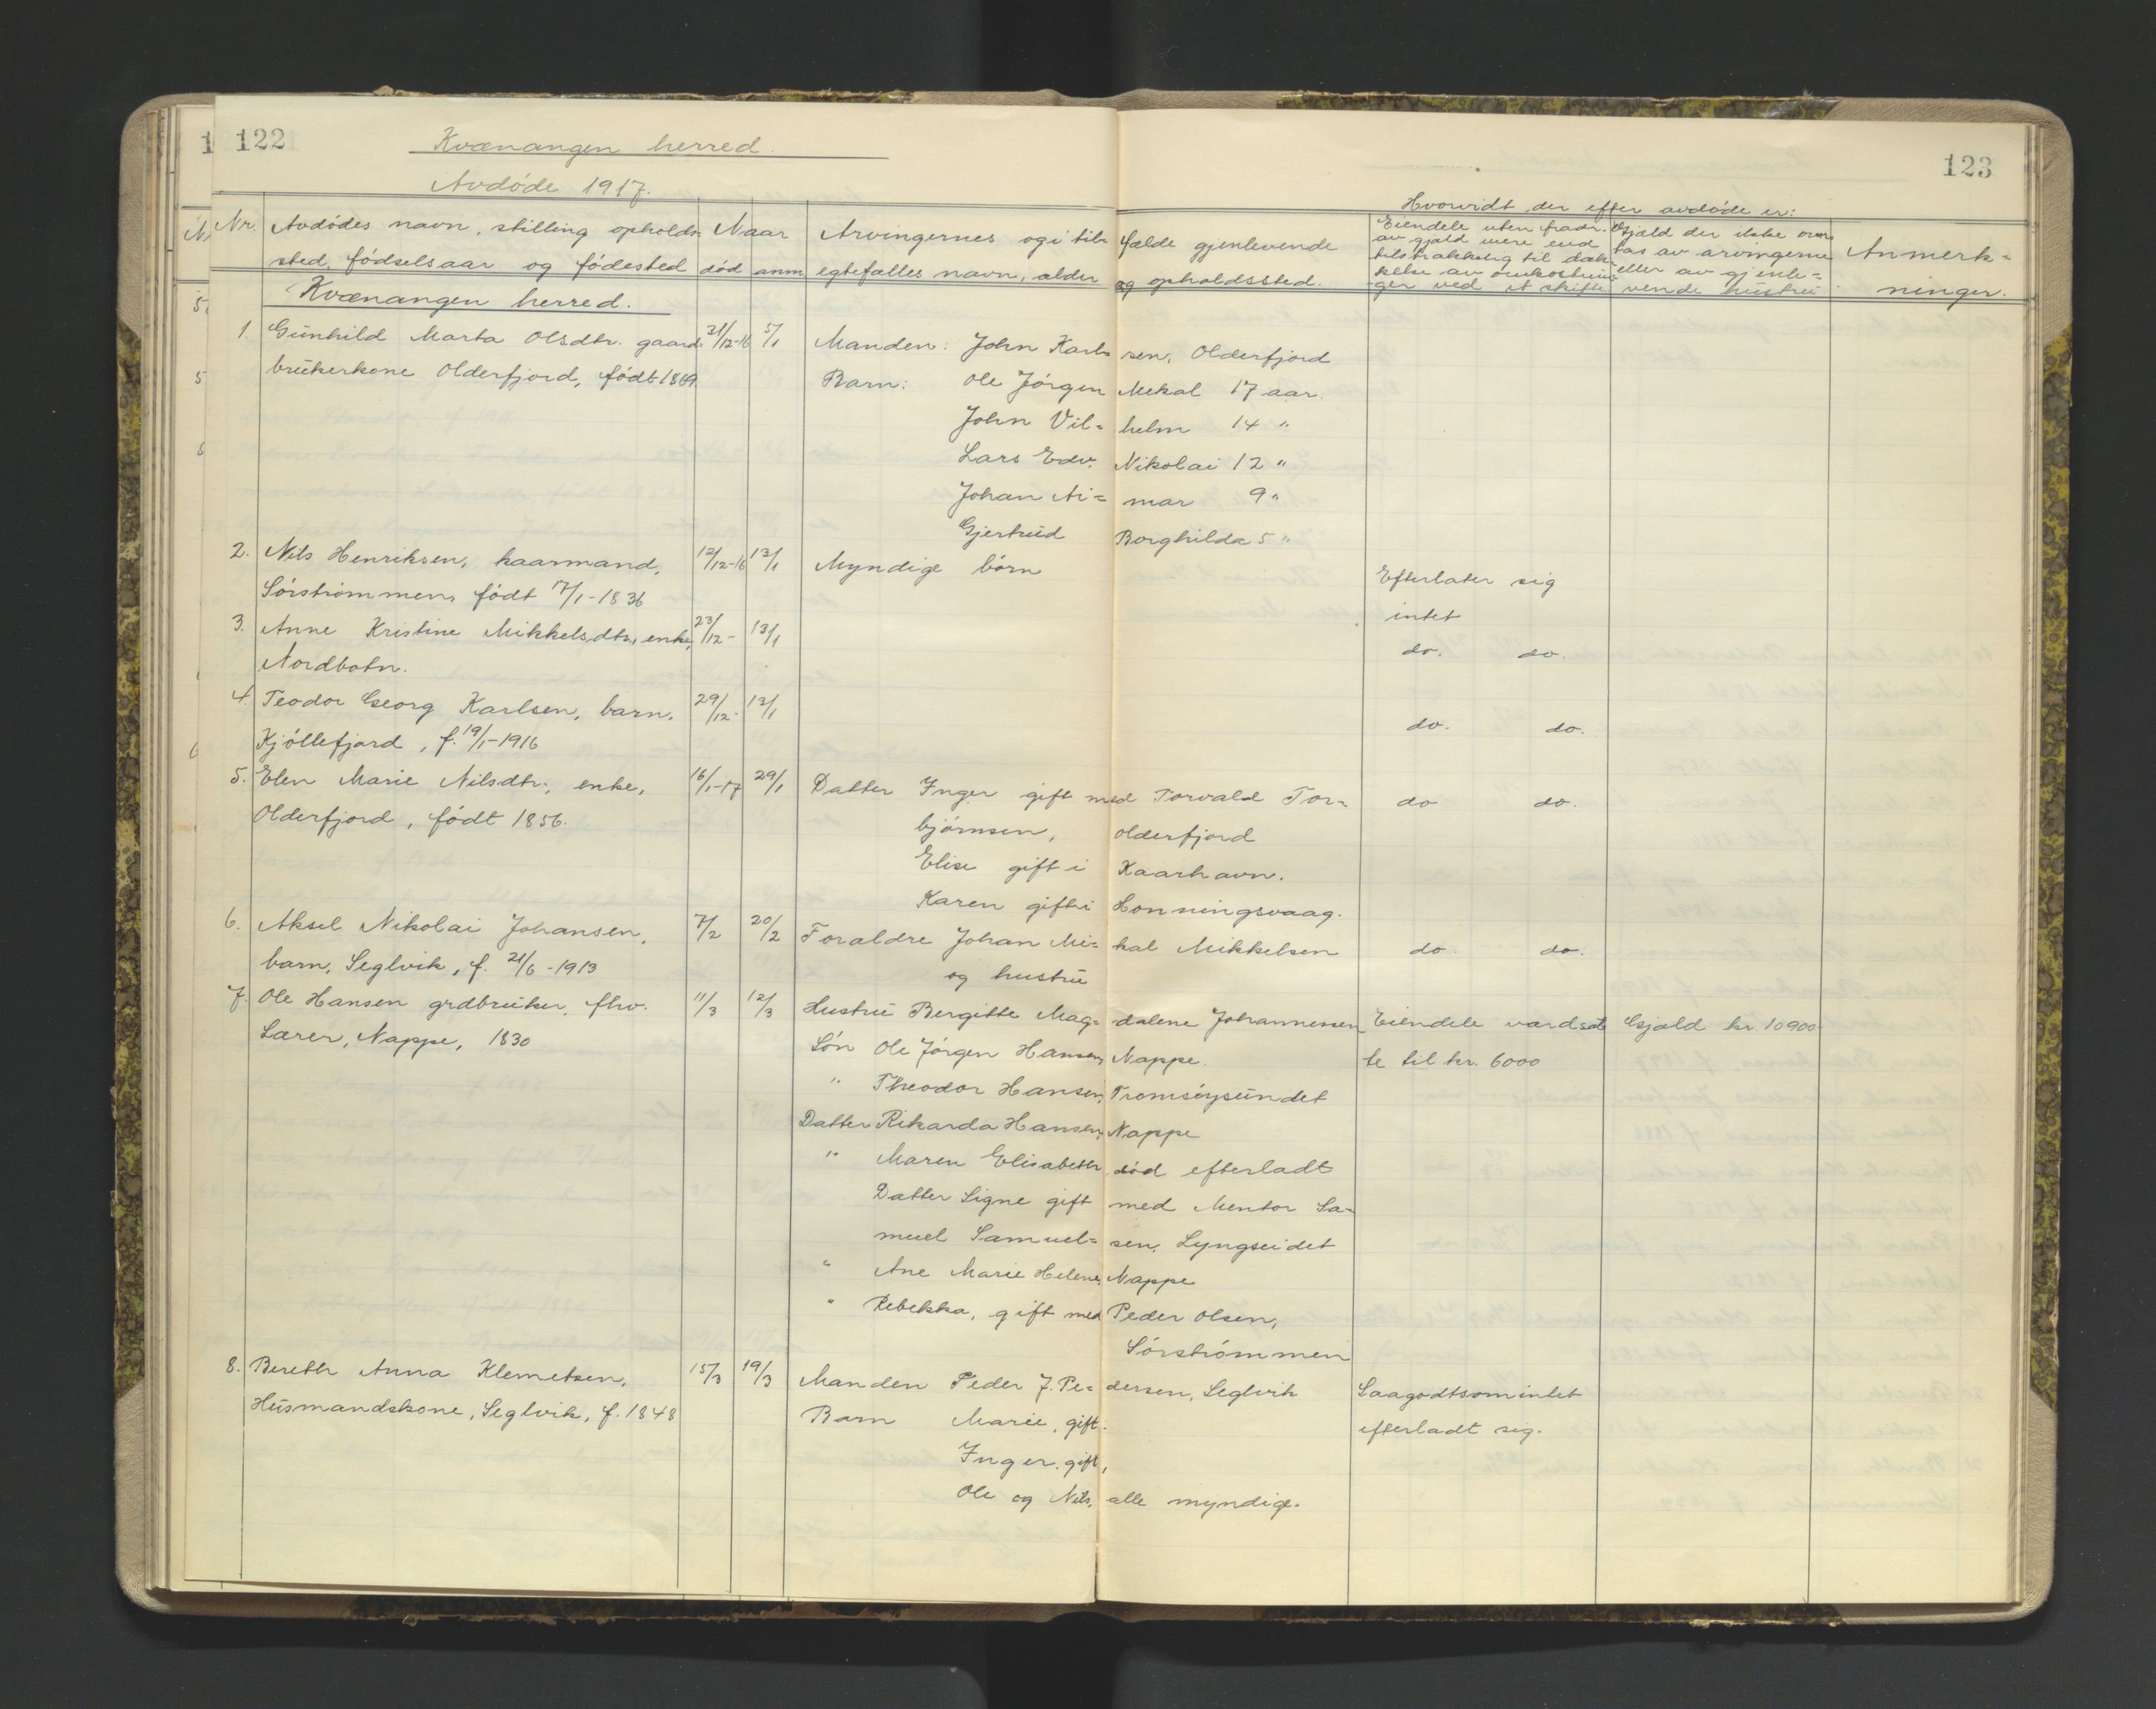 122
Kvænangen herred.
Avdøde 1917.
123
Hvorvidt der efter avdøde er:
Nr. Avdødes navn, stilling opholds= Naar Arvingernes og i til= fælde gjenlevende Eiendele uten fradr. Gjæld der ikke over= Anmerk=
sted, fødselsaar og fødested død anm egtefælles navn, alder og opholdssted. av gjæld mere end tas av arvingerne ninger.
tilstrækkelig til dæk= eller av gjenle=
kelse av omkostnin= vende hustru
ger ved et skifte
Kvænangen herred.
1. Gunhild Marta Olsdtr. gaard= 31/12-16 5/1 Manden: John Karl= sen, Olderfjord
brukerkone Olderfjord, født 1869 Barn: Ole Jørgen Mekal 17 aar.
John Vil= helm 14 "
Lars Edv. Nikolai 12 "
Johan Ai= mar 9 "
Gjertrud Borghilda 5 "
2. Nils Henriksen, kaarmand, 12/12-16 13/1 Myndige børn Efterlater sig
Sørstrømmen, født 17/1-1836 intet
3. Anne Kristine Mikkelsdtr, enke, 23/12- 13/1 do. do.
Nordbotn.
4. Teodor Georg Karlsen, barn, 29/12- 13/1 do. do.
Kjøllefjord, f. 19/1-1916
5. Elen Marie Nilsdtr, enke, 16/1-17 29/1 Datter Inger gift med Torvald Tor= do do.
Olderfjord, født 1856. bjørnsen, Olderfjord
Elise gift i Kaarhavn.
Karen gift i Honningsvaag.
6. Aksel Nikolai Johansen, 7/2 20/2 Foraldre Johan Mi= kal Mikkelsen do. do.
barn, Seglvik, f. 21/6-1913 og hustru
7. Ole Hansen grdbruker, fhv. 11/3 12/3 Hustru Bergitte Mag= dalene Johannessen Eiendele værdsat Gjæld kr. 10900
Lærer, Nappe, 1830 Søn Ole Jørgen Hansen, Nappe. te til kr. 6000
" Theodor Hansen, Tromsøysundet
Datter Rikarda Hansen, Nappe
" Maren Elisabeth, død efterladt
Datter Signe gift med Mentor Sa=
muel Samuel= sen, Lyngseidet
" Ane Marie Helene, Nappe
" Rebekka, gift med Peder Olsen,
Sørstrømmen
8. Bereth Anna Klemetsen, 15/3 19/3 Manden Peder J. Pe= dersen, Seglvik Saagodtsom intet
Husmandskone, Seglvik, f. 1848 Barn Marie, gift. efterladt sig.
Inger, gift,
Ole og Nils, alle myndige.